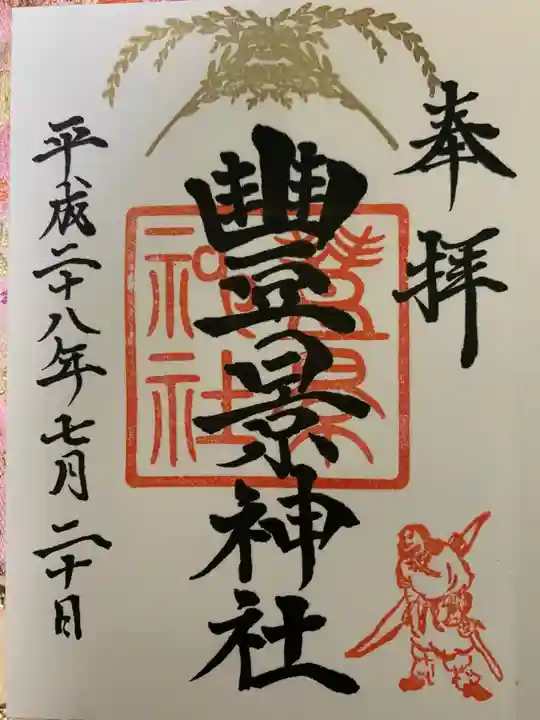 奉拝
豐景神社
平成二十八年七月二十日
豊景
神社